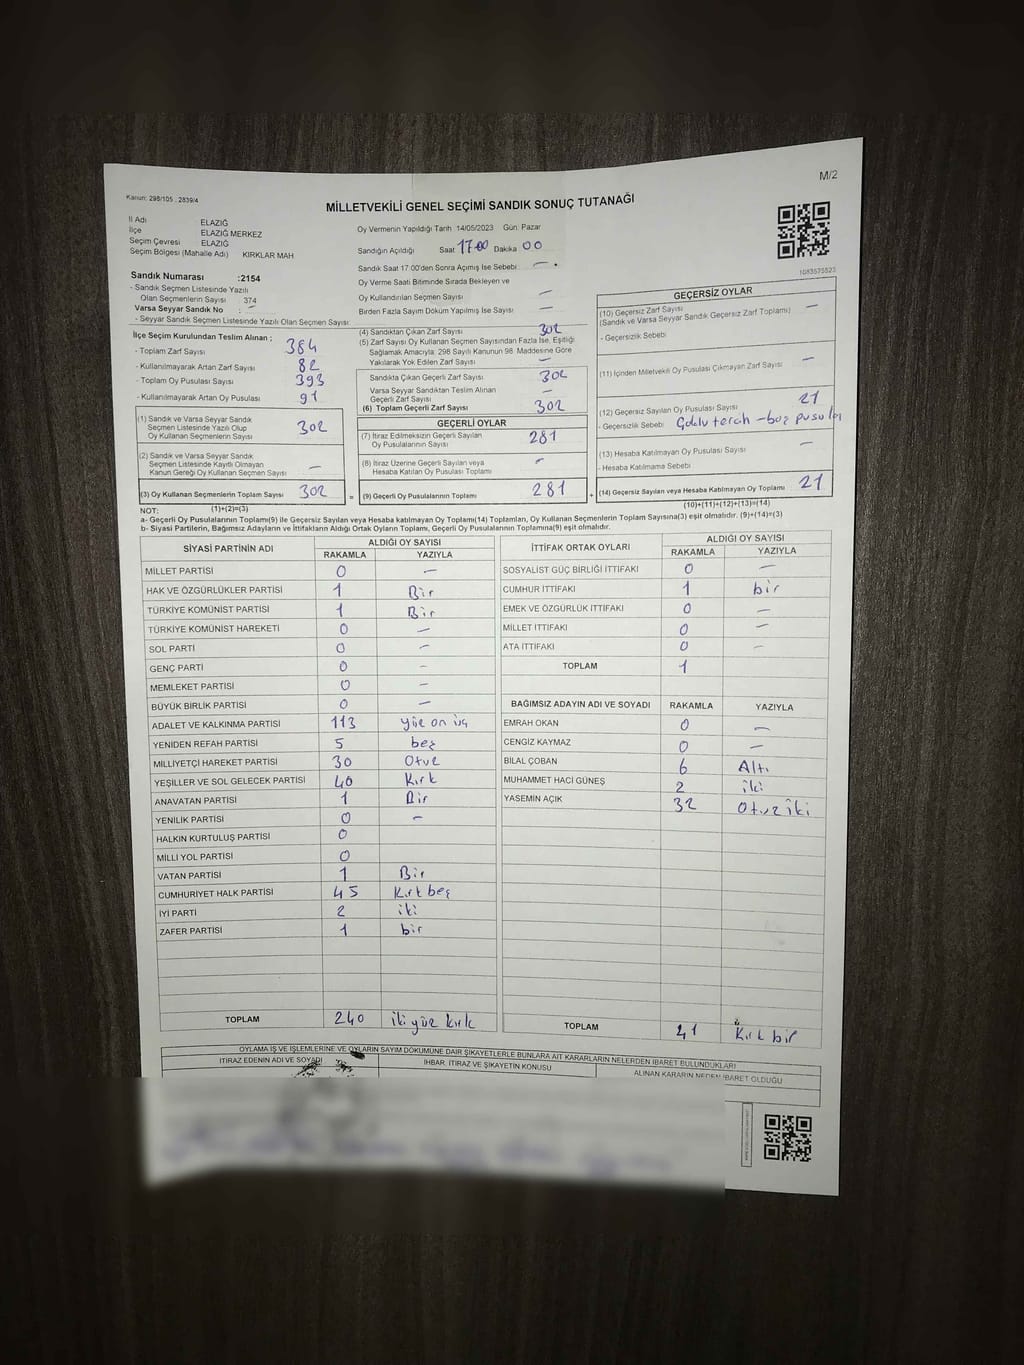 M/2
Kanun: 298/105 . 2839/4
MİLLETVEKİLİ GENEL SEÇİMİ SANDIK SONUÇ TUTANAĞI
İl Adı ELAZIĞ
İlçe ELAZIĞ MERKEZ
Seçim Çevresi ELAZIĞ
Seçim Bölgesi (Mahalle Adı) KIRKLAR MAH
Sandık Numarası :2154
- Sandık Seçmen Listesinde Yazılı
Olan Seçmenlerin Sayısı 374
Varsa Seyyar Sandık No : -
- Seyyar Sandık Seçmen Listesinde Yazılı Olan Seçmen Sayısı
Oy Vermenin Yapıldığı Tarih 14/05/2023 Gün: Pazar
Sandığın Açıldığı Saat 17:00 Dakika 00
Sandık Saat 17.00'den Sonra Açımış İse Sebebi: -
Oy Verme Saati Bitiminde Sırada Bekleyen ve
Oy Kullandırılan Seçmen Sayısı -
Birden Fazla Sayım Döküm Yapılmış İse Sayısı -
1083575523
İlçe Seçim Kurulundan Teslim Alınan ;
- Toplam Zarf Sayısı 384
- Kullanılmayarak Artan Zarf Sayısı 82
- Toplam Oy Pusulası Sayısı 393
- Kullanılmayarak Artan Oy Pusulası 91
(1) Sandık ve Varsa Seyyar Sandık
Seçmen Listesinde Yazılı Olup
Oy Kullanan Seçmenlerin Sayısı 302
(2) Sandık ve Varsa Seyyar Sandık
Seçmen Listesinde Kayıtlı Olmayan
Kanun Gereği Oy Kullanan Seçmen Sayısı -
(3) Oy Kullanan Seçmenlerin Toplam Sayısı 302
(4) Sandıktan Çıkan Zarf Sayısı 302
(5) Zarf Sayısı Oy Kullanan Seçmen Sayısından Fazla İse, Eşitliği
Sağlamak Amacıyla; 298 Sayılı Kanunun 98. Maddesine Göre
Yakılarak Yok Edilen Zarf Sayısı -
Sandıkta Çıkan Geçerli Zarf Sayısı 302
Varsa Seyyar Sandıktan Teslim Alınan
Geçerli Zarf Sayısı -
(6) Toplam Geçerli Zarf Sayısı 302
GEÇERLİ OYLAR
(7) İtiraz Edilmeksizin Geçerli Sayılan
Oy Pusulalarının Sayısı 281
(8) İtiraz Üzerine Geçerli Sayılan veya
Hesaba Katılan Oy Pusulaları Toplamı -
= (9) Geçerli Oy Pusulalarının Toplamı 281
GEÇERSİZ OYLAR
(10) Geçersiz Zarf Sayısı
(Sandık ve Varsa Seyyar Sandık Geçersiz Zarf Toplamı) -
- Geçersizlik Sebebi
(11) İçinden Milletvekili Oy Pusulası Çıkmayan Zarf Sayısı -
(12) Geçersiz Sayılan Oy Pusulası Sayısı 21
- Geçersizlik Sebebi Çoklu tercih - boş pusula
(13) Hesaba Katılmayan Oy Pusulası Sayısı -
- Hesaba Katılmama Sebebi
+ (14) Geçersiz Sayılan veya Hesaba Katılmayan Oy Toplamı 21
NOT: (1)+(2)=(3) (10)+(11)+(12)+(13)=(14)
a- Geçerli Oy Pusulalarının Toplamı(9) ile Geçersiz Sayılan veya Hesaba katılmayan Oy Toplamı(14) Toplamları, Oy Kullanan Seçmenlerin Toplam Sayısına(3) eşit olmalıdır. (9)+(14)=(3)
b- Siyasi Partilerin, Bağımsız Adayların ve İttifakların Aldığı Ortak Oyların Toplamı, Geçerli Oy Pusulalarının Toplamına(9) eşit olmalıdır.
SİYASİ PARTİNİN ADI ALDIĞI OY SAYISI
RAKAMLA YAZIYLA
MİLLET PARTİSİ 0 -
HAK VE ÖZGÜRLÜKLER PARTİSİ 1 Bir
TÜRKİYE KOMÜNİST PARTİSİ 1 Bir
TÜRKİYE KOMÜNİST HAREKETİ 0 -
SOL PARTİ 0 -
GENÇ PARTİ 0 -
MEMLEKET PARTİSİ 0 -
BÜYÜK BİRLİK PARTİSİ 0 -
ADALET VE KALKINMA PARTİSİ 113 yüz on üç
YENİDEN REFAH PARTİSİ 5 beş
MİLLİYETÇİ HAREKET PARTİSİ 30 Otuz
YEŞİLLER VE SOL GELECEK PARTİSİ 40 Kırk
ANAVATAN PARTİSİ 1 Bir
YENİLİK PARTİSİ 0 -
HALKIN KURTULUŞ PARTİSİ 0
MİLLİ YOL PARTİSİ 0
VATAN PARTİSİ 1 Bir
CUMHURİYET HALK PARTİSİ 45 Kırk beş
İYİ PARTİ 2 iki
ZAFER PARTİSİ 1 bir
TOPLAM 240 iki yüz kırk
İTTİFAK ORTAK OYLARI ALDIĞI OY SAYISI
RAKAMLA YAZIYLA
SOSYALİST GÜÇ BİRLİĞİ İTTİFAKI 0 -
CUMHUR İTTİFAKI 1 bir
EMEK VE ÖZGÜRLÜK İTTİFAKI 0 -
MİLLET İTTİFAKI 0 -
ATA İTTİFAKI 0 -
TOPLAM 1
BAĞIMSIZ ADAYIN ADI VE SOYADI RAKAMLA YAZIYLA
EMRAH OKAN 0 -
CENGİZ KAYMAZ 0 -
BİLAL ÇOBAN 6 Altı
MUHAMMET HACİ GÜNEŞ 2 iki
YASEMİN AÇIK 32 Otuz iki
TOPLAM 41 Kırk bir
OYLAMA İŞ VE İŞLEMLERİNE VE OYLARIN SAYIM DÖKÜMÜNE DAİR ŞİKAYETLERLE BUNLARA AİT KARARLARIN NELERDEN İBARET BULUNDUKLARI
İTİRAZ EDENİN ADI VE SOYADI İHBAR, İTİRAZ VE ŞİKAYETİN KONUSU ALINAN KARARIN NEDEN İBARET OLDUĞU